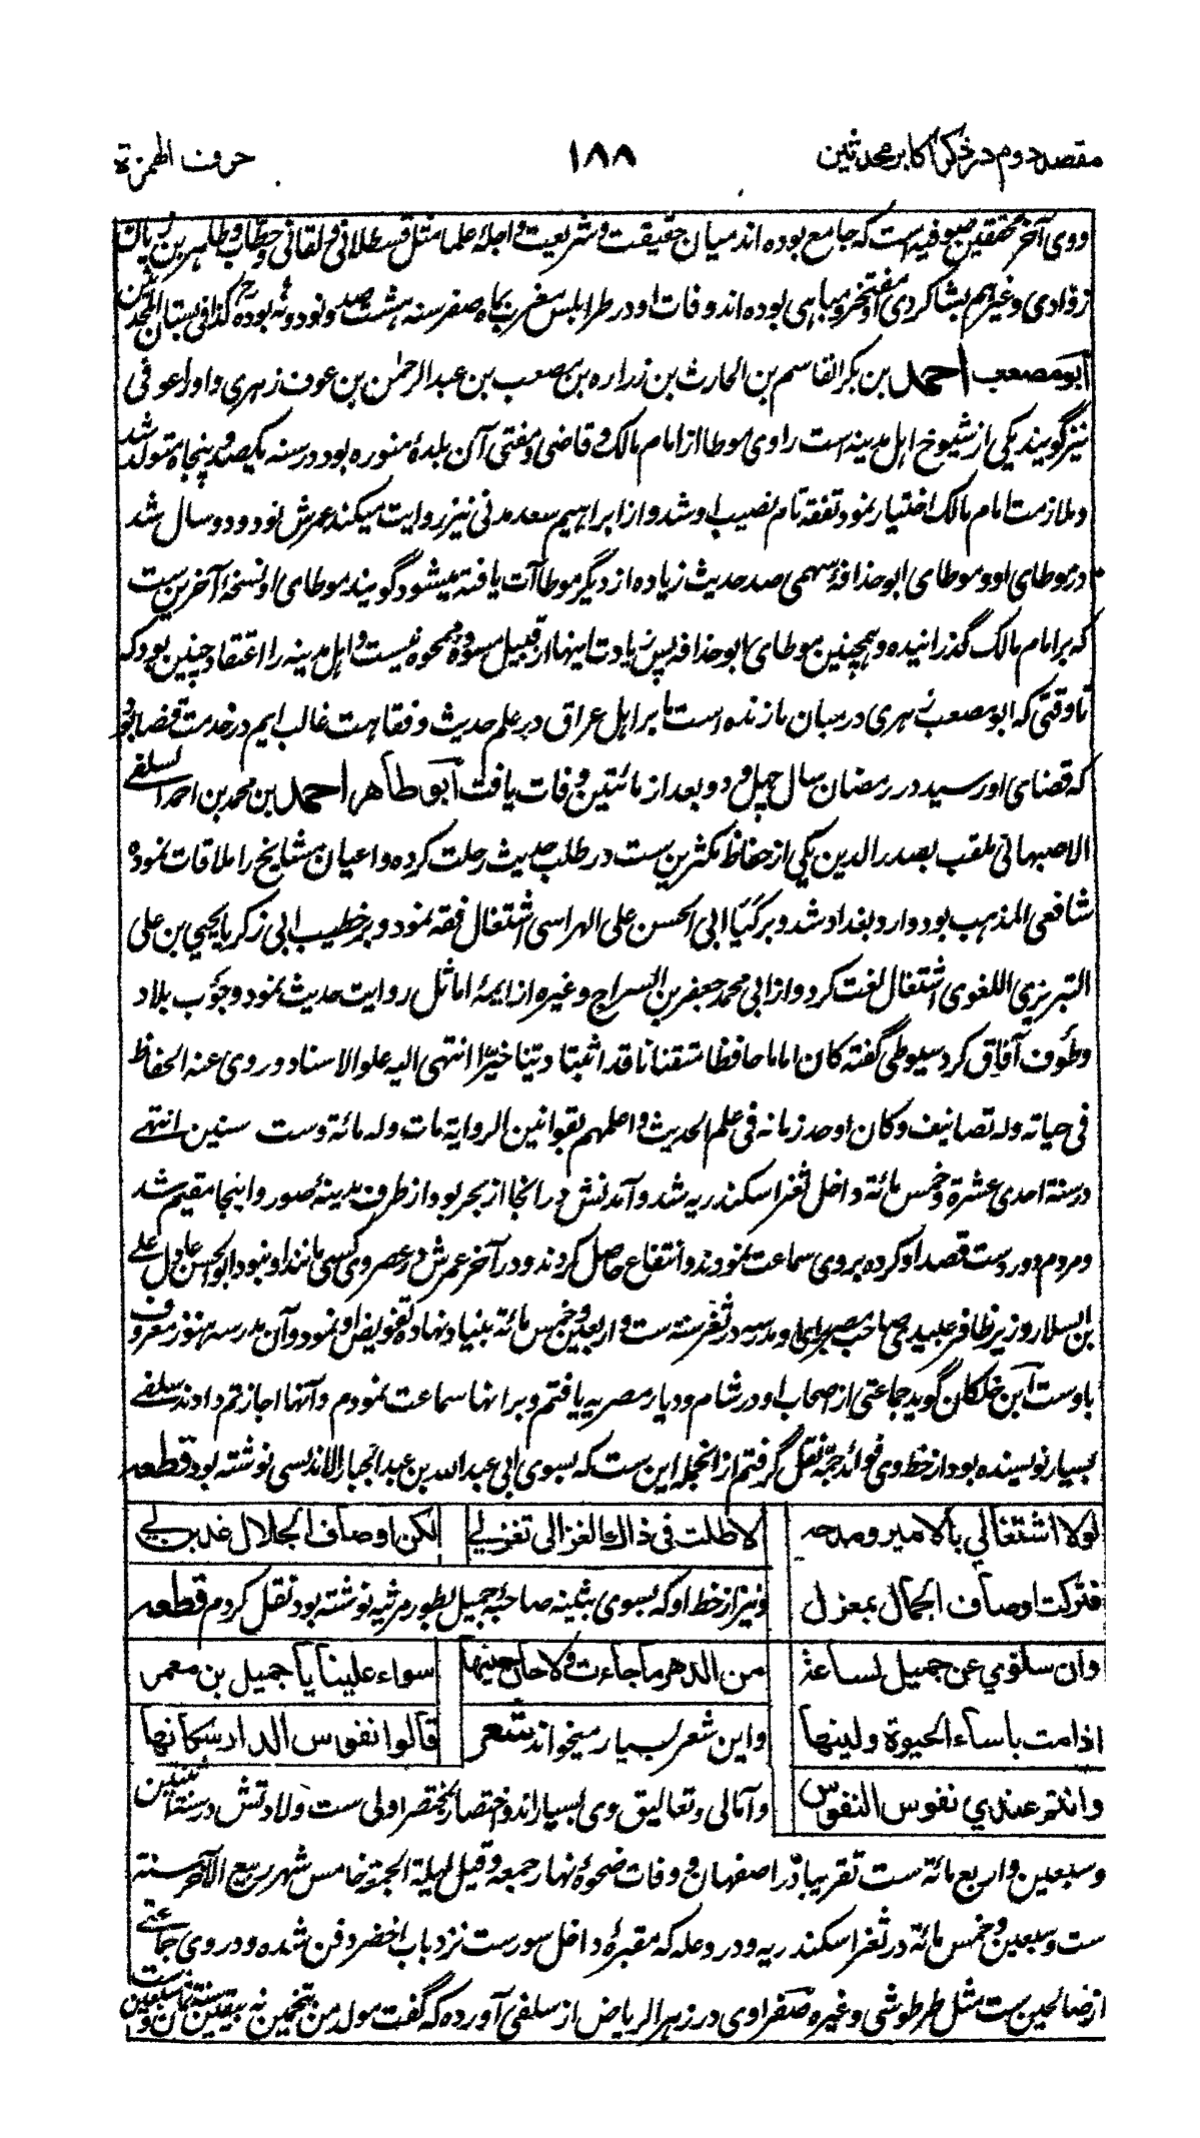 مقصد دوم در ذکر اکابر محدثین ۱۸۸ حرف الهمزة
ووی آخر محققین صوفیه است که جامع بوده اند میان حقیقت و شریعت و اجلهٔ علما مثل قسطلانی و لقانی و حطاب و طاہر بن زبان
زوّادی وغیرہم بشاگردی او مفتخر و مباہی بوده اند وفات او در طرابلس مغرب بماه صفر سنہ ہشت صد و نود و نہ بوده رح کذا فی بستان المحدثین
ابو مصعب احمد بن بکر القاسم بن الحارث بن زراره بن مصعب بن عبد الرحمٰن بن عوف زہری و او را عوفی
نیز گویند یکی از شیوخ اہل مدینہ است راوی موطا از امام مالک و قاضی و مفتی آن بلدهٔ منوره بود در سنہ یکصد و پنجاه متولد شد
و ملازمت امام مالک اختیار نمود تفقہ تام نصیب او شد و از ابراہیم سعد مدنی نیز روایت میکند عمرش نود و دو سال شد
در موطای او و موطای ابو حذافهٔ سہمی صد حدیث زیاده از دیگر موطاآت یافتہ میشود گویند موطای او نسخهٔ آخرین ست
که بر امام مالک گذرانیده و ہمچنین موطای ابو حذافہ پس زیادت اینہا از قبیل مسوده ممحوه نیست و اہل مدینہ را اعتقاد چنین بود که
تا وقتی که ابو مصعب زہری در میان ما زنده است ما بر اہل عراق در علم حدیث و فقاہت غالب ایم در خدمت قضا بود
که قضای او رسید در رمضان سال چہل و دو بعد از مائتین وفات یافت ابو طاهر احمد بن محمد بن احمد السلفی
الاصبہانی ملقب بصدر الدین یکی از حفاظ مکثرین ست در طلب حدیث رحلت کرده و اعیان مشایخ را ملاقات نموده
شافعی المذہب بود وارد بغداد شد و بر کیا ابی الحسن علی الہراسی اشتغال فقہ نمود و بر خطیب ابی زکریا یحیی بن علی
التبریزی اللغوی اشتغال لغت کرد و از ابی محمد جعفر بن السراج وغیره از ایمهٔ اماثل روایت حدیث نمود و جوب بلاد
و طوف آفاق کرد سیوطی گفتہ کان اماما حافظا متقنا ناقدا ثبتا دینا خیرا انتہی الیہ علو الاسناد و روی عنہ الحفاظ
فی حیاتہ ولہ تصانیف و کان اوحد زمانہ فی علم الحدیث و اعلمہم بقوانین الروایة مات ولہ مائة وست سنین انتہے
در سنة احدی عشرة و خمس مائة داخل ثغر اسکندریہ شد و آمدنش در انجا از بحر بود از طرف مدینهٔ صور و اینجا مقیم شد
و مردم دوردست قصد او کرده بروی سماعت نمودند و انتفاع حاصل کردند و در آخر عمرش در عصر وی کسی مانند او نبود ابو الحسن عادل علی
بن السلار وزیر ظافر عبیدی صاحب مصر برای او مدرسہ در ثغر سنہ ست و اربعین و خمس مائة بنیاد نهاده تفویض او نمود و آن مدرسہ ہنوز معروف
باوست ابن خلکان گوید جماعتی از اصحاب او در شام و دیار مصریہ یافتم و بر انہا سماعت نمودم و آنہا اجازتم دادند سلفے
بسیار نویسنده بود از خط وی فوائد جمّہ نقل گرفتم از انجملہ این ست که بسوی ابی عبد اللہ بن عبد الجبار الاندلسی نوشتہ بود قطعہ
لولا اشتغالي بالامیر ومدحہ لاطلت فی ذاک الغزالی تغزلي لکن اوصاف الجلال عذبن لي
فترکت اوصاف الجمال بمعزل ونیز از خط او که بسوی بثینہ صاحبهٔ جمیل بطور مرثیہ نوشتہ بود نقل کردم قطعہ
وان سلوي عن جمیل لساعة من الدهر ما جاءت ولا حان حینها سواء علینا یا جمیل بن معمر
اذا مت باساء الحیوة ولینها واین شعر بسیار میخواند شعر قالوا نفوس الدار سکانها
وانتم عندي نفوس النفوس و آمالی و تعالیق وی بسیار اند و اختصار بمختصر اولی ست ولادتش در سنة اثنتین
و سبعین و اربع مائة ست تقریبا در اصفهان و وفات ضحوهٔ نہار جمعہ و قیل لیلة الجمعة خامس شہر ربیع الآخر سنة
ست و سبعین و خمس مائة در ثغر اسکندریہ و در وعلہ که مقبرهٔ داخل سورست نزد باب اخضر دفن شده و در وی جماعتے
از صالحین ست مثل طرطوشی وغیره صفراوی در زہر الریاض از سلفی آورده که گفت مولد من بتخمین نہ بیقین سنة ثمان و سبعین ست